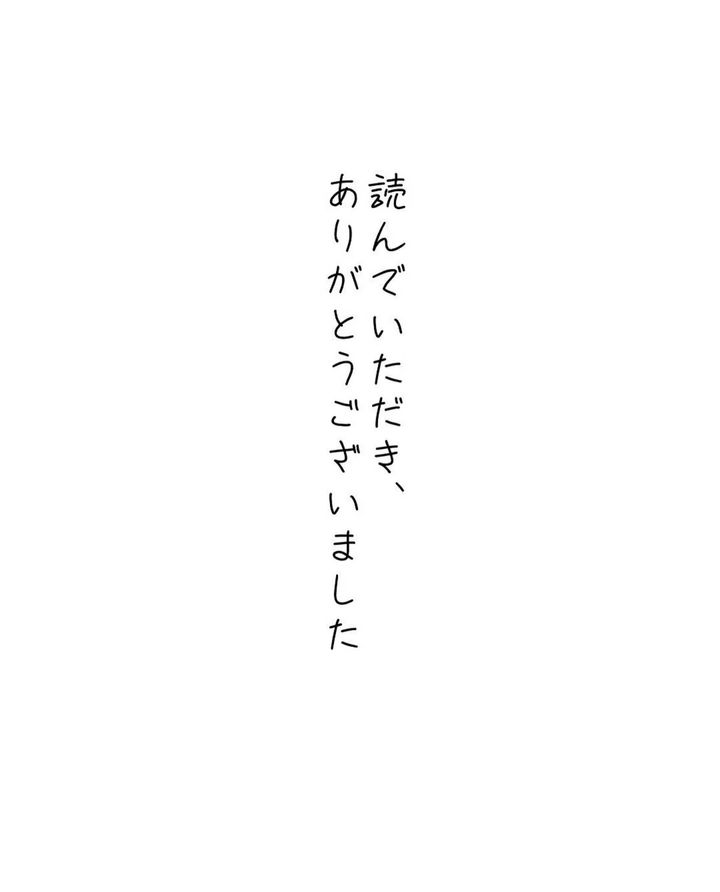 読んでいただき、
ありがとうございました